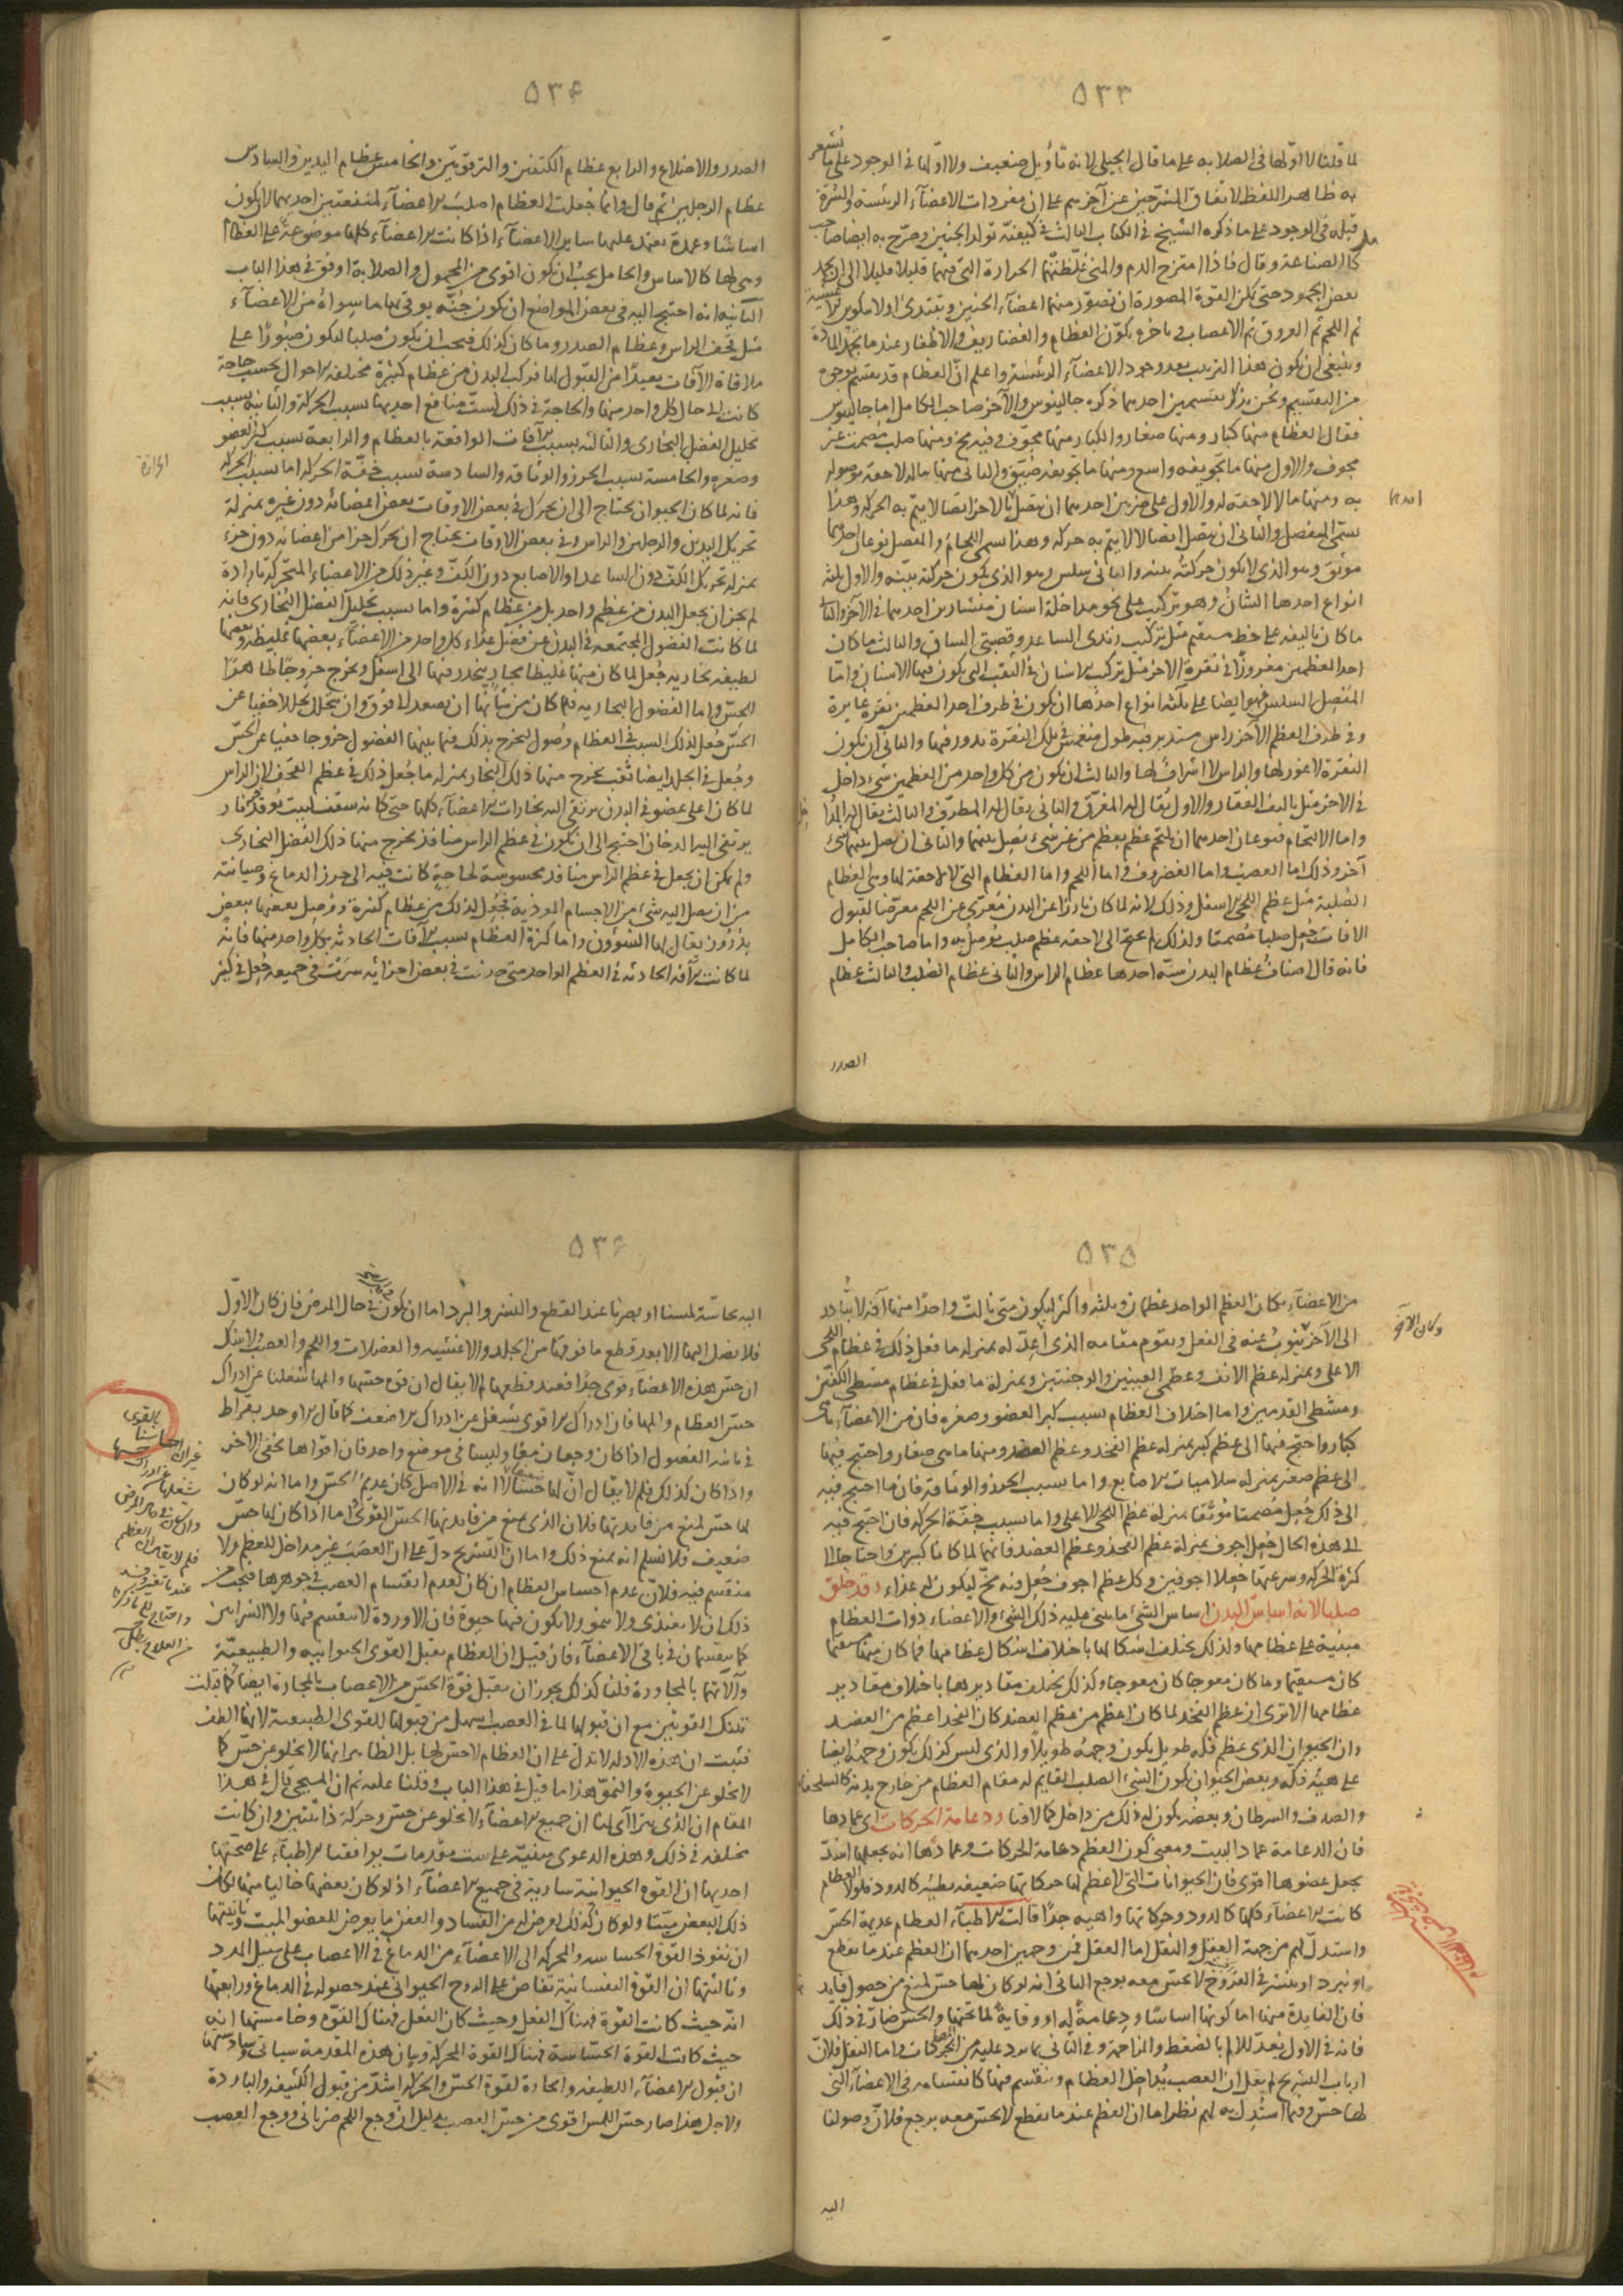 ٥٣٣
لما قلنا لا اولها فى الصلابة على ما قال الجيلى لانه تأويل ضعيف ولا اولها فى الوجود على ما يشعر
به ظاهر اللفظ لاتفاق المشرحين عن آخرهم على ان مفردات الاعضاء الرئيسة والشرة
قبله فى الوجود على ما ذكره الشيخ فى الكتاب الثالث فى كيفية تولد الجنين وصرح به ايضا صاحب
كامل الصناعة وقال فاذا امتزج الدم والمنى غلظتهما الحرارة التى فيهما قليلا قليلا الى ان يجمد
بعض الجمود حتى يمكن القوة المصورة ان تصور منهما اعضاء الجنين ويبتدى اولا بتكوين الاغشية
ثم اللحم ثم العروق ثم الاعصاب وفى باخره يكون العظام والغضاريف والاظفار عندما تجمد المادة
وينبغى ان يكون هذا الترتيب بعد وجود الاعضاء الرئيسة واعلم ان العظام قد يقسم بوجوه
من التقسيم ونحن نذكر تقسيمين احدهما ذكره جالينوس والآخر صاحب الكامل اما جالينوس
فقال العظام منها كبار ومنها صغار والكبار منها مجوف وفيه مخ ومنها صلب مصمت غير
مجوف والاول منها ما تجويفه واسع ومنها ما تجويفه ضيق والثانى منها ما له لاحقة موصوله
به ومنها ما لا لاحقة له والاول على ضربين احدهما ان يتصل بالاخر اتصالا يتم به الحركة وهذا
يسمى المفصل والثانى ان يتصل اتصالا لا يتم به حركة وهذا يسمى اللحام والمفصل نوعان احدهما
موثق وهو الذى لا يكون حركته بينة والثانى سلس وهو الذى يكون حركته بينة والاول ثلثه
انواع احدها الشان وهو تركيب على نحو مداخلة اسنان منشارين احدهما فى الآخر والثانى
ما كان تاليفه على خط مستقيم مثل تركيب زندى الساعد وقصبتى الساق والثالث ما كان
احد العظمين مغروزا فى نقرة الاخر مثل تركيب الاسنان فى الثقب التى يكون فيها الاسنان واما
المفصل السلس فهو ايضا على ثلثة انواع احدها ان يكون فى طرف احد العظمين نقرة غايرة
وفى طرف العظم الآخر راس مستدير فيه طول منغمس فى تلك النقرة يدور فيها والثانى ان يكون
النقرة لا غور لها والراس لا اشراف لها والثالث ان يكون من كل واحد من العظمين شىء داخل
فى الآخر مثل تاليف الفقار والاول يقال له المغرق والثانى يقال له المطرف والثالث يقال له المداخل
واما الالتحام فنوعان احدهما ان يلتحم عظم بعظم من غير شىء يصل بينهما والثانى ان يصل بينهما شىء
آخر وذلك اما العصب واما الغضروف واما اللحم واما العظام التى لا لاحقة لها وهى العظام
الصلبة مثل عظم اللحى الاسفل وذلك لانه لما كان بارزا عن البدن معرى عن اللحم معرضا لقبول
الافات جعل صلبا مصمتا ولذلك لم يحتج الى لاحقه عظم صلب يوصل به واما صاحب الكامل
فانه قال اصناف عظام البدن سته احدها عظام الراس والثانى عظام الصلب والثالث عظام
الصدر
٥٣٤
الصدر والاضلاع والرابع عظام الكتفين والترقوتين والخامس عظام اليدين والسادس
عظام الرجلين ثم قال وانما جعلت العظام اصلب الاعضاء لمنفعتين احديهما لان يكون
اساسا وعمدة يعتمد عليها ساير الاعضاء اذا كانت الاعضاء كلها موضوعة على العظام
وهى لها كالاساس والحامل يجب ان يكون اقوى من المحمول والصلابة اوفق فى هذا الباب
الثانية انه احتيج اليه فى بعض المواضع ان يكون جنة يوقى بها ما سواه من الاعضاء
مثل قحف الراس وعظام الصدر وما كان كذلك فيجب ان يكون صلبا ليكون صبورا على
ملاقاة الآفات بعيدا من القبول لها فركب البدن من عظام كثيرة مختلفة الاحوال بحسب حاجة
كانت الى حال كل واحد منها والحاجة فى ذلك لست منافع احديها بسبب الحركة والثانية بسبب
تحليل الفضل البخارى والثالثة بسبب الآفات الواقعة بالعظام والرابعة بسبب كبر العضو
وصغره والخامسة بسبب الحرز والوثاقة والسادسة بسبب خفة الحركة اما بسبب الحركة
فانه لما كان الحيوان يحتاج الى ان يحرك فى بعض الاوقات بعض اعضائه دون غيره بمنزلة
تحريك اليدين والرجلين والراس وفى بعض الاوقات يحتاج ان يحرك جزا من اعضائه دون جزء
بمنزلة تحريك الكف دون الساعد او الاصابع دون الكف وغير ذلك من الاعضاء المتحركة بارادة
لم يجز ان يجعل البدن من عظم واحد بل من عظام كثيرة واما بسبب تحليل الفضل البخارى فانه
لما كانت الفضول المجتمعة فى البدن عن فضل غذاء كل واحد من الاعضاء بعضها غليظة وبعضها
لطيفه بخاريه جعل لما كان منها غليظا مجارى ينحدر فيها الى اسفل ويخرج خروجا ظاهرا
للحس واما الفضول البخارية فلما كان من شانها ان يصعد الى فوق وان يتحلل تحللا خفيا عن
الحس جعل لذلك السبب فى العظام وصول ليخرج بذلك فيما بينها الفضول خروجا خفيا عن الحس
وجعل فى الجلد ايضا ثقب يخرج منها ذلك البخار بمنزلة ما جعل ذلك فى عظم القحف لان الراس
لما كان اعلى عضو فى البدن يرتقى اليه بخارات الاعضاء كلها حتى كانه سقف لبيت توقد فيه نار
يرتقى اليه الدخان احتيج الى ان يكون فى عظم الراس منافذ يخرج منها ذلك الفضل البخارى
ولم يمكن ان يجعل فى عظم الراس منافذ محسوسة لحاجة كانت فيه الى حرز الدماغ وصيانته
من ان يصل اليه شىء من الاجسام الموذية فجعل لذلك من عظام كثيرة ووصل بعضها ببعض
بدروز يقال لها الشؤون واما كثرة العظام بسبب الآفات الحادثه بكل واحد منها فانه
لما كانت الآفة الحادثه فى العظم الواحد متى حدثت فى بعض اجزائه سرت فى جميعه جعل فى كثير
٥٣٥
من الاعضاء مكان العظم الواحد عظمان وثلثه واكثر ليكون متى نالت واحدا منها آفة لا يتادى
الى الآخر فينوب عنه فى الفعل ويقوم مقامه الذى اعد له بمنزلة ما فعل ذلك فى عظام اللحى
الاعلى وبمنزلة عظم الانف وعظمى العينين والوجنتين وبمنزلة ما فعل فى عظام مشطى الكفين
ومشطى القدمين واما اختلاف العظام بسبب كبر العضو وصغره فان من الاعضاء ما هى
كبار واحتيج فيها الى عظم كبير بمنزلة عظم الفخذ وعظم العضد ومنها ما هى صغار واحتيج فيها
الى عظم صغير بمنزلة سلاميات الاصابع واما بسبب الحرز والوثاقة فان ما احتيج فيه
الى ذلك جعل مصمتا موثقا بمنزلة عظم اللحى الاعلى واما بسبب خفة الحركة فان احتيج فيه
الى هذه الحال جعل اجوف بمنزلة عظم الفخذ وعظم العضد فانهما لما كانا كبيرين واحتاجا الى
كثرة الحركه وسرعتها جعلا اجوفين وكل عظم اجوف جعل فيه مخ ليكون له غذاء وقد خلق
صلبا لانه اساس البدن اساس الشىء ما يبنى عليه ذلك الشىء والاعضاء ذوات العظام
مبنية على عظامها ولذلك يختلف اشكالها باختلاف اشكال عظامها فما كان منها مستقيما
كان مستقيما وما كان معوجا كان معوجا وكذلك يختلف مقاديرها باختلاف مقادير
عظامها الا ترى ان عظم الفخذ لما كان اعظم من عظم العضد كان الفخذ اعظم من العضد
وان الحيوان الذى عظم فكه طويل يكون وجهه طويلا والذى ليس كذلك يكون وجهه ايضا
على هيئة فكه وبعض الحيوان يكون الشىء الصلب القايم له مقام العظام من خارج بدنه كالسلحفاة
والصدف والسرطان وبعضه يكون له ذلك من داخل كما لافتا ودعامة الحركات اى عمادها
فان الدعامة عماد البيت ومعنى كون العظم دعامة الحركات وعمادها انه يجعلها اشد
بجعل عضوها اقوى فان الحيوانات التى لا عظم لها حركاتها ضعيفه بطيئه كالدود فلولا العظام
كانت الاعضاء كلها كالدود وحركاتها واهيه جدا قالت الاطباء العظام عديمة الحس
واستدل لهم من جهة العقل والنقل اما العقل فمن وجهين احدهما ان العظم عندما يقطع
او يبرد او ينشر فى القروح لا يحس معه بوجع الثانى انه لو كان لها حس لمنع من حصول فايدتها
فان الفايدة منها اما كونها اساسا ودعامة له او وقاية لما تحتها والحس ضار فى ذلك
فانه فى الاول يعد للالم بالضغط والمزاحمة وفى الثانى بما يرد عليه من المحركات واما النقل فلان
ارباب التشريح لم يقل ان العصب يداخل العظام وينقسم فيها كانقسامه فى الاعضاء التى
لها حس وفيما استدل به لهم نظر اما ان العظم عندما يقطع لا يحس معه بوجع فلان وصولنا
اليه
٥٣٦
اليه بحاسة لمسنا او بصرنا عند القطع والنشر والبرد اما ان يكون فى حال المرض فان كان الاول
فلا نصل اليها الا بعد قطع ما فوقها من الجلد والاغشيه والعضلات واللحم والعصب ولا شك
ان حس هذه الاعضاء قوى جدا فعند قطعها لم لا يقال ان قوة حسها والمها شغلنا عن ادراك
حس العظام والمها فان ادراك الاقوى يشغل عن ادراك الاضعف كما قال الاوحد بقراط
فى ثانية الفصول اذا كان وجعان معا وليسا فى موضع واحد فان اقواهما يخفى الآخر
واذا كان كذلك فلم لا يقال ان لها حسا الا انه فى الاصل كان عديم الحس واما انه لو كان
لها حس لمنع من فايدتها فلان الذى يمنع من فايدتها الحس القوى اما اذا كان لها حس
ضعيف فلا نسلم انه يمنع ذلك واما ان التشريح دل على ان العصب غير مداخل للعظم ولا
منقسم فيه فلان عدم احساس العظام ان كان لعدم انقسام العصب فى جوهرها فيجب من
ذلك ان لا يغتذى ولا ينمو ولا يكون فيها حيوة فان الاوردة لا ينقسم فيها ولا الشرايين
كما ينقسمان فى باقى الاعضاء فان قيل ان العظام يقبل القوى الحيوانيه والطبيعية
وآلاتها بالمجاورة قلنا كذلك يجوز ان يقبل قوة الحس من الاعصاب بالمجاورة ايضا كما قبلت
تلك القوتين مع ان قبولها لما فى العصب اسهل من قبولها للقوى الطبيعية لانها الطف
فثبت ان هذه الادلة لا تدل على ان العظام لا حس لها بل الظاهر انها لا يخلو عن حس كما
لا يخلو عن الحيوة والنمو هذا ما قيل فى هذا الباب وقلنا عليه ثم ان المسيحى قال فى هذا
المقام ان الذى يترا آى لنا ان جميع الاعضاء لا يخلو عن حس وحركة ذاتيتين وان كانت
مختلفة فى ذلك وهذه الدعوى مبنية على ست مقدمات يوافقنا الاطباء على صحتها
احديها ان القوة الحيوانية سارية فى جميع الاعضاء اذ لو كان بعضها خاليا منها لكان
ذلك البعض ميتا ولو كان كذلك لعرض له من الفساد والعفن ما يعرض للعضو الميت وثانيتها
ان نفوذ القوة الحساسه والمحركه الى الاعضاء من الدماغ فى الاعصاب على سبيل المدد
وثالثتها ان القوة النفسانية تفاض على الروح الحيوانى عند حصوله فى الدماغ ورابعتها
انه حيث كانت القوة فهناك الفعل وحيث كان الفعل فهناك القوة وخامستها انه
حيث كانت القوة الحساسة فهناك القوة المحركة وبيان هذه المقدمة سياتى وسادستها
ان قبول الاعضاء اللطيفه والحارة لقوة الحس والحركه اشد من قبول الكثيفة والباردة
ولاجل هذا صار حس اللمس اقوى من حس العصب بدليل ان وجع اللحم ضربانى ووجع العصب